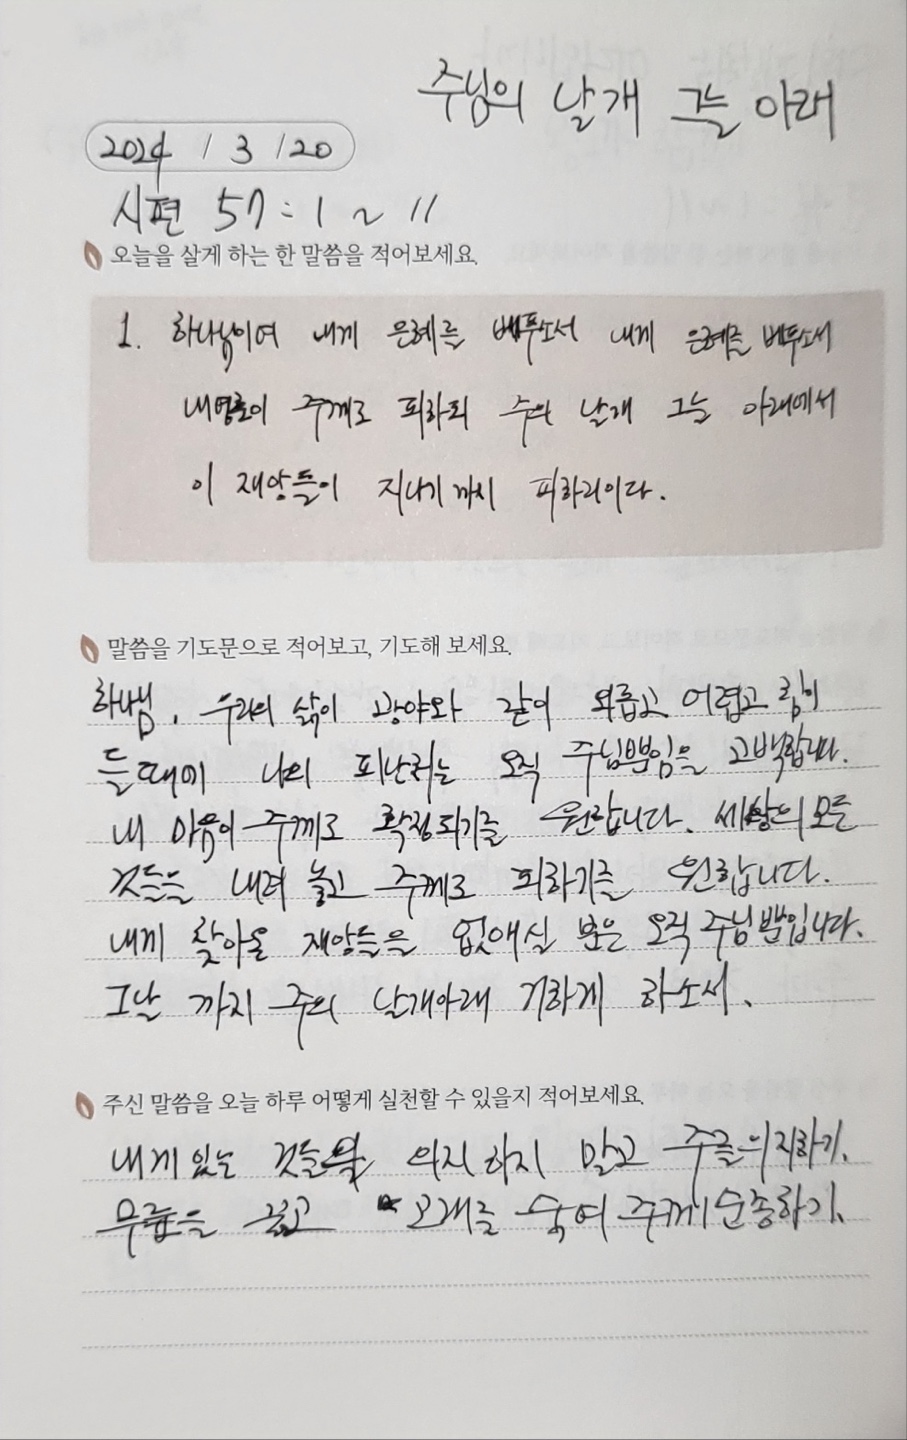 주님의 날개 그늘 아래
2024 / 3 / 20
시편 57 : 1 ~ 11
오늘을 살게 하는 한 말씀을 적어보세요.
1. 하나님이여 내게 은혜를 베푸소서 내게 은혜를 베푸소서
내영혼이 주께로 피하되 주의 날개 그늘 아래에서
이 재앙들이 지나기까지 피하리이다.
말씀을 기도문으로 적어보고, 기도해 보세요.
하나님, 우리의 삶이 광야와 같이 외롭고 어렵고 힘이
들때에 나의 피난처는 오직 주님뿐임을 고백합니다.
내 마음이 주께로 확정되기를 원합니다. 세상의 모든
것들을 내려 놓고 주께로 피하기를 원합니다.
내게 찾아올 재앙들을 없애실 분은 오직 주님뿐입니다.
그날 까지 주의 날개아래 거하게 하소서.
주신 말씀을 오늘 하루 어떻게 실천할 수 있을지 적어보세요.
내게 있는 것들을 의지하지 말고 주를의지하기.
무릎을 꿇고 고개를 숙여 주께 순종하기.